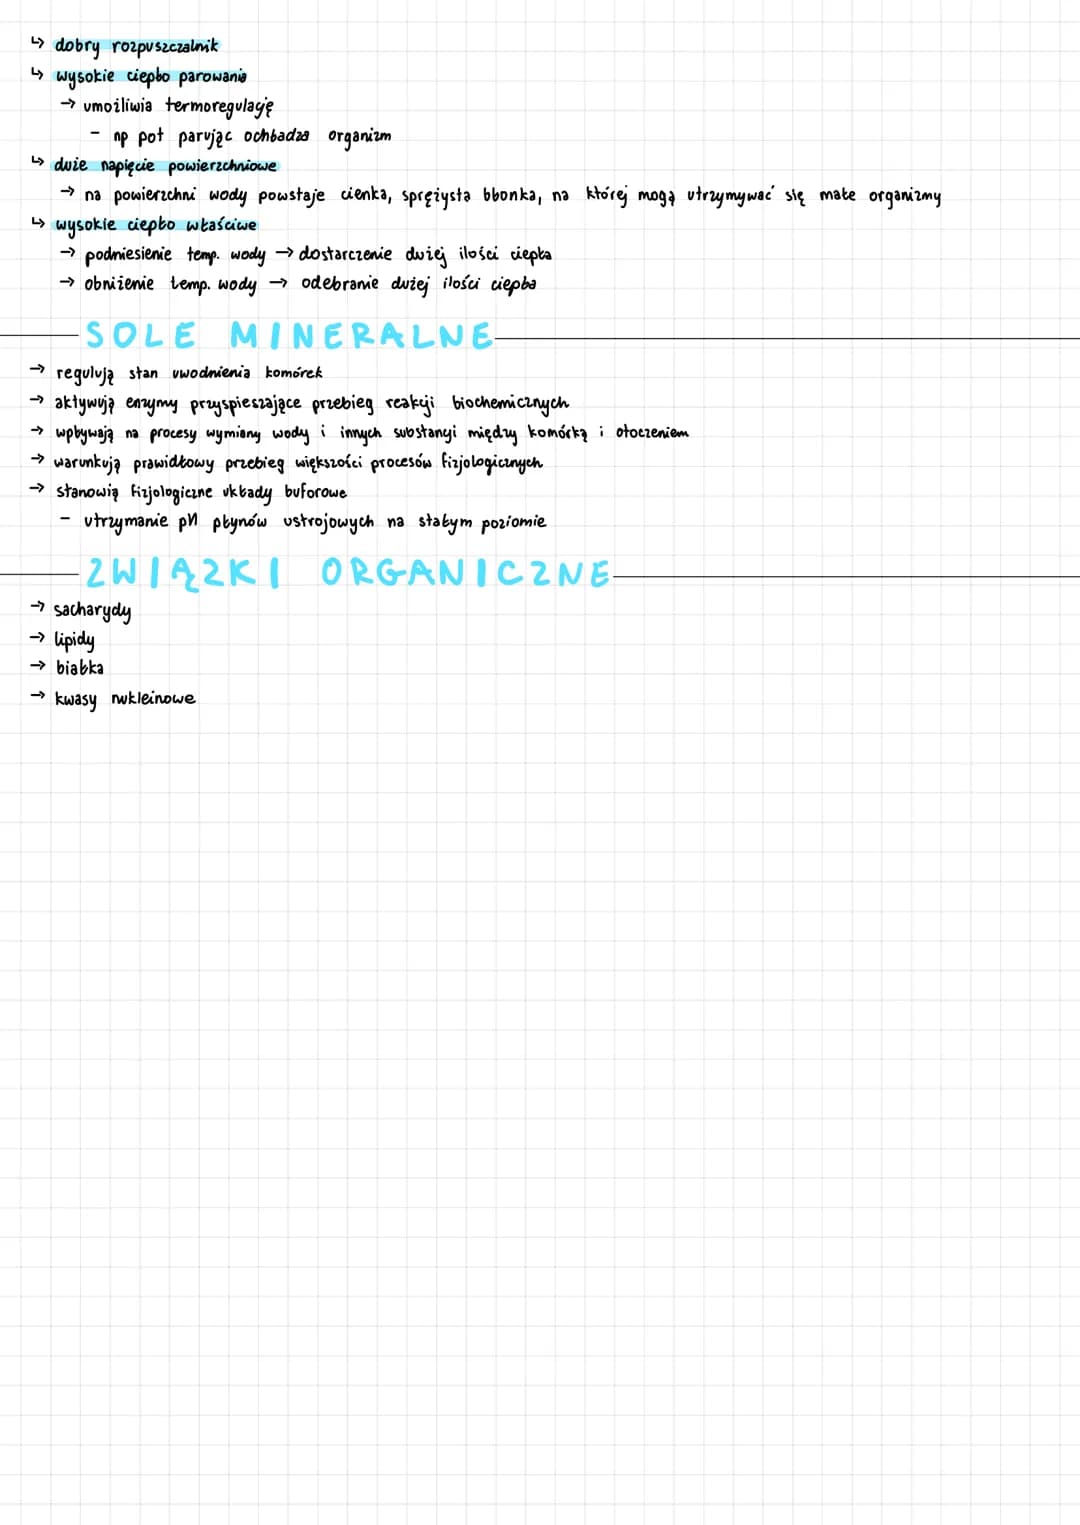 ↳ dobry rozpuszczalnik
↳ wysokie ciepło parowania
→ umożliwia termoregulację
- np pot parując ochładza organizm
↳ duże napięcie powierzchniowe
→ na powierzchni wody powstaje cienka, sprężysta błonka, na której mogą utrzymywać się małe organizmy
↳ wysokie ciepło właściwe
→ podniesienie temp. wody → dostarczenie dużej ilości ciepła
→ obniżenie temp. wody → odebranie dużej ilości ciepła
SOLE MINERALNE
→ regulują stan uwodnienia komórek
→ aktywują enzymy przyspieszające przebieg reakcji biochemicznych
→ wpływają na procesy wymiany wody i innych substancji między komórką i otoczeniem
→ warunkują prawidłowy przebieg większości procesów fizjologicznych
→ stanowią fizjologiczne układy buforowe
- utrzymanie pH płynów ustrojowych na stałym poziomie
ZWIĄZKI ORGANICZNE
→ sacharydy
→ lipidy
→ białka
→ kwasy nukleinowe